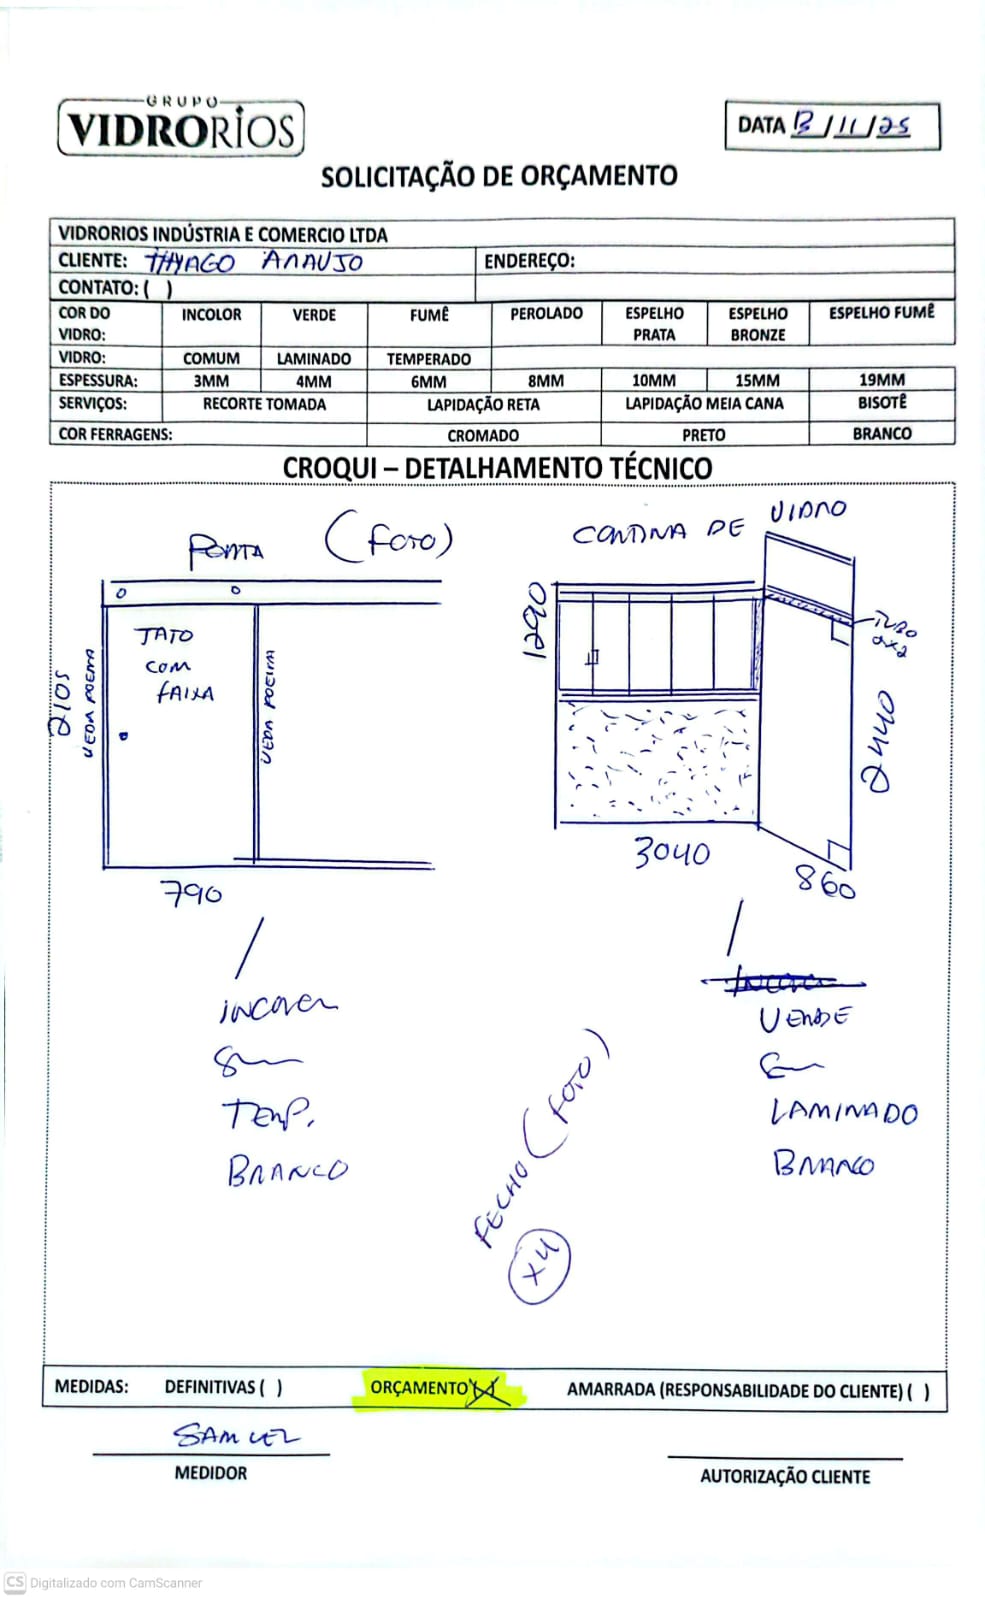 GRUPO
VIDRORIOS
DATA 13/11/25
SOLICITAÇÃO DE ORÇAMENTO
VIDRORIOS INDÚSTRIA E COMERCIO LTDA
CLIENTE: THYAGO ARAUJO ENDEREÇO:
CONTATO: ( )
COR DO VIDRO: INCOLOR VERDE FUMÊ PEROLADO ESPELHO PRATA ESPELHO BRONZE ESPELHO FUMÊ
VIDRO: COMUM LAMINADO TEMPERADO
ESPESSURA: 3MM 4MM 6MM 8MM 10MM 15MM 19MM
SERVIÇOS: RECORTE TOMADA LAPIDAÇÃO RETA LAPIDAÇÃO MEIA CANA BISOTÊ
COR FERRAGENS: CROMADO PRETO BRANCO
CROQUI – DETALHAMENTO TÉCNICO
PORTA (FOTO)
JATO
COM
FAIXA
2105
VEDA POEIRA
VEDA POEIRA
790
INCOLOR
8mm
TEMP.
BRANCO
CORTINA DE VIDRO
1290
TUBO
2x2
2440
3040
860
INCOLOR
VERDE
8mm
LAMINADO
BRANCO
FECHO (FOTO)
x4
MEDIDAS: DEFINITIVAS ( ) ORÇAMENTO (X) AMARRADA (RESPONSABILIDADE DO CLIENTE) ( )
SAMUEL
MEDIDOR
AUTORIZAÇÃO CLIENTE
CS Digitalizado com CamScanner